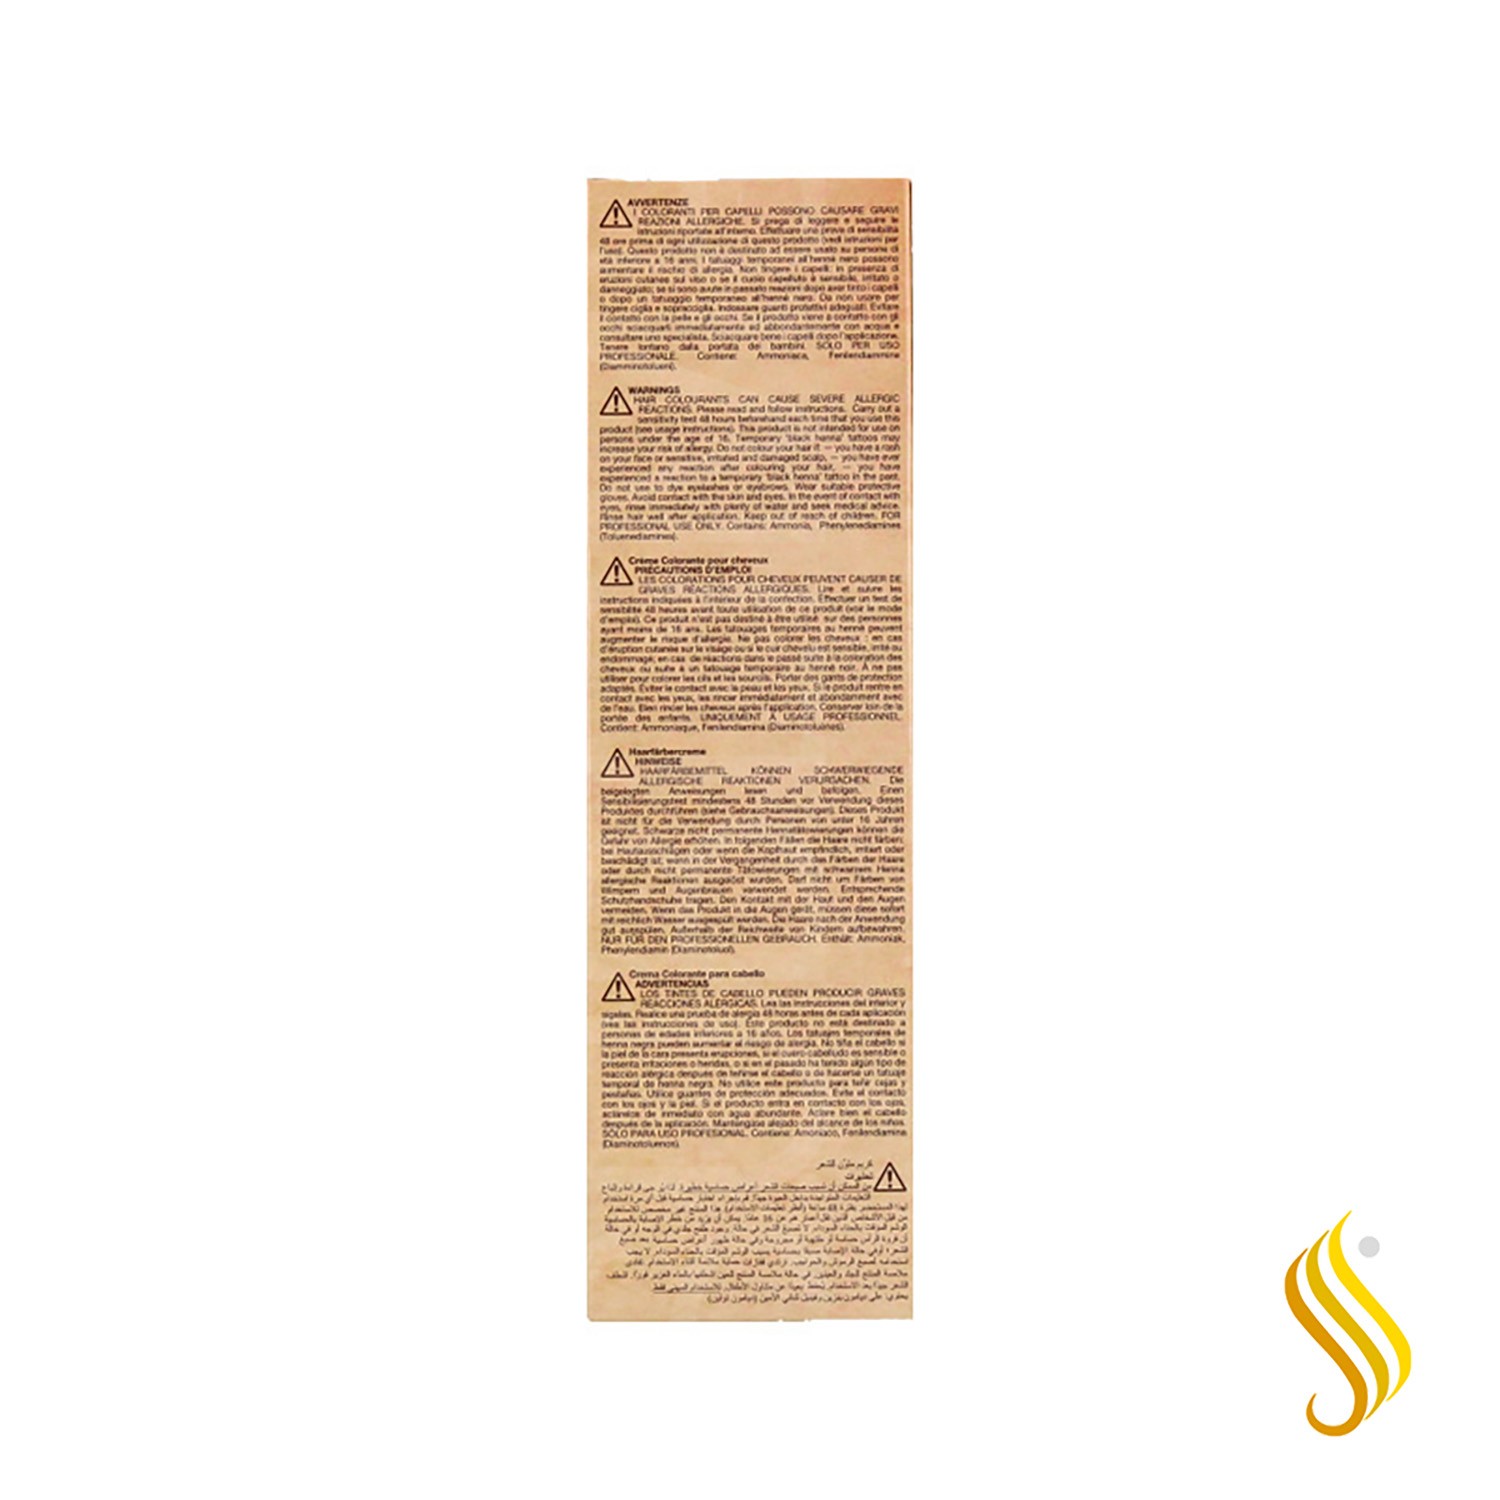 AVVERTENZE
I COLORANTI PER CAPELLI POSSONO CAUSARE GRAVI
REAZIONI ALLERGICHE. Si prega di leggere e seguire le
istruzioni riportate all'interno. Effettuare una prova di sensibilità
48 ore prima di ogni utilizzazione di questo prodotto (vedi istruzioni per
l'uso). Questo prodotto non è destinato ad essere usato su persone di
età inferiore a 16 anni. I tatuaggi temporanei all'henné nero possono
aumentare il rischio di allergia. Non tingere i capelli: in presenza di
eruzioni cutanee sul viso o se il cuoio capelluto è sensibile, irritato o
danneggiato; se si sono avute in passato reazioni dopo aver tinto i capelli
o dopo un tatuaggio temporaneo all'henné nero. Da non usare per
tingere ciglia e sopracciglia. Indossare guanti protettivi adeguati. Evitare
il contatto con la pelle e gli occhi. Se il prodotto viene a contatto con gli
occhi sciacquarli immediatamente ed abbondantemente con acqua e
consultare uno specialista. Sciacquare bene i capelli dopo l'applicazione.
Tenere lontano dalla portata dei bambini. SOLO PER USO
PROFESSIONALE. Contiene: Ammoniaca, Fenilendiammine
(Diamminotolueni).
WARNINGS
HAIR COLOURANTS CAN CAUSE SEVERE ALLERGIC
REACTIONS. Please read and follow instructions. Carry out a
sensitivity test 48 hours beforehand each time that you use this
product (see usage instructions). This product is not intended for use on
persons under the age of 16. Temporary 'black henna' tattoos may
increase your risk of allergy. Do not colour your hair if: — you have a rash
on your face or sensitive, irritated and damaged scalp, — you have ever
experienced any reaction after colouring your hair, — you have
experienced a reaction to a temporary 'black henna' tattoo in the past.
Do not use to dye eyelashes or eyebrows. Wear suitable protective
gloves. Avoid contact with the skin and eyes. In the event of contact with
eyes, rinse immediately with plenty of water and seek medical advice.
Rinse hair well after application. Keep out of reach of children. FOR
PROFESSIONAL USE ONLY. Contains: Ammonia, Phenylenediamines
(Toluenediamines).
Crème Colorante pour cheveux
PRÉCAUTIONS D'EMPLOI
LES COLORATIONS POUR CHEVEUX PEUVENT CAUSER DE
GRAVES RÉACTIONS ALLERGIQUES. Lire et suivre les
instructions indiquées à l'intérieur de la confection. Effectuer un test de
sensibilité 48 heures avant toute utilisation de ce produit (voir le mode
d'emploi). Ce produit n'est pas destiné à être utilisé sur des personnes
ayant moins de 16 ans. Les tatouages temporaires au henné peuvent
augmenter le risque d'allergie. Ne pas colorer les cheveux : en cas
d'éruption cutanée sur le visage ou si le cuir chevelu est sensible, irrité ou
endommagé; en cas de réactions dans le passé suite à la coloration des
cheveux ou suite à un tatouage temporaire au henné noir. À ne pas
utiliser pour colorer les cils et les sourcils. Porter des gants de protection
adaptés. Éviter le contact avec la peau et les yeux. Si le produit rentre en
contact avec les yeux, les rincer immédiatement et abondamment avec
de l'eau. Bien rincer les cheveux après l'application. Conserver loin de la
portée des enfants. UNIQUEMENT À USAGE PROFESSIONNEL.
Contient: Ammoniaque, Fenilendiamina (Diaminotoluènes).
Haarfärbercreme
HINWEISE
HAARFÄRBEMITTEL KÖNNEN SCHWERWIEGENDE
ALLERGISCHE REAKTIONEN VERURSACHEN. Die
beigelegten Anweisungen lesen und befolgen. Einen
Sensibilisierungstest mindestens 48 Stunden vor Verwendung dieses
Produktes durchführen (siehe Gebrauchsanweisungen). Dieses Produkt
ist nicht für die Verwendung durch Personen von unter 16 Jahren
geeignet. Schwarze nicht permanente Hennatätowierungen können die
Gefahr von Allergie erhöhen. In folgenden Fällen die Haare nicht färben:
bei Hautausschlägen oder wenn die Kopfhaut empfindlich, irritiert oder
beschädigt ist; wenn in der Vergangenheit durch das Färben der Haare
oder durch nicht permanente Tätowierungen mit schwarzem Henna
allergische Reaktionen ausgelöst wurden. Darf nicht um Färben von
Wimpern und Augenbrauen verwendet werden. Entsprechende
Schutzhandschuhe tragen. Den Kontakt mit der Haut und den Augen
vermeiden. Wenn das Produkt in die Augen gerät, müssen diese sofort
mit reichlich Wasser ausgespült werden. Die Haare nach der Anwendung
gut ausspülen. Außerhalb der Reichweite von Kindern aufbewahren.
NUR FÜR DEN PROFESSIONELLEN GEBRAUCH. Enthält: Ammoniak,
Phenylendiamin (Diaminotoluol).
Crema Colorante para cabello
ADVERTENCIAS
LOS TINTES DE CABELLO PUEDEN PRODUCIR GRAVES
REACCIONES ALÉRGICAS. Lea las instrucciones del interior y
sígalas. Realice una prueba de alergia 48 horas antes de cada aplicación
(vea las instrucciones de uso). Este producto no está destinado a
personas de edades inferiores a 16 años. Los tatuajes temporales de
henna negra pueden aumentar el riesgo de alergia. No tiña el cabello si
la piel de la cara presenta erupciones, si el cuero cabelludo es sensible o
presenta irritaciones o heridas, o si en el pasado ha tenido algún tipo de
reacción alérgica después de teñirse el cabello o de hacerse un tatuaje
temporal de henna negra. No utilice este producto para teñir cejas y
pestañas. Utilice guantes de protección adecuados. Evite el contacto
con los ojos y la piel. Si el producto entra en contacto con los ojos,
aclárelos de inmediato con agua abundante. Aclare bien el cabello
después de la aplicación. Manténgase alejado del alcance de los niños.
SÓLO PARA USO PROFESIONAL. Contiene: Amoniaco, Fenilendiamina
(Diaminotoluenos).
كريم ملوّن للشعر
تحذيرات